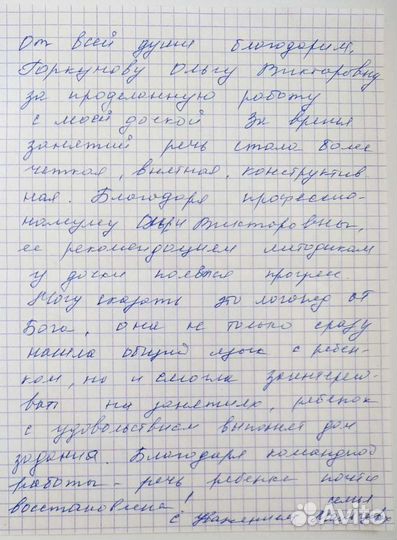 От всей души благодарим,
Горкунову Ольгу Викторовну
за проделанную работу
с моей дочкой За время
занятий речь стала более
четкая, внятная, конструктив-
ная. Благодаря профессио-
нализму Ольги Викторовны,
ее рекомендациям методикам
у дочки появился прогресс.
Могу сказать это логопед от
Бога, она не только сразу
нашла общий язык с ребен-
ком, но и смогла заинтересо-
вать на занятиях, ребенок
с удовольствием выполняет дом
задания. Благодаря командной
работы - речь ребенка почти
восстановлена!
с Уважением семья
Avito